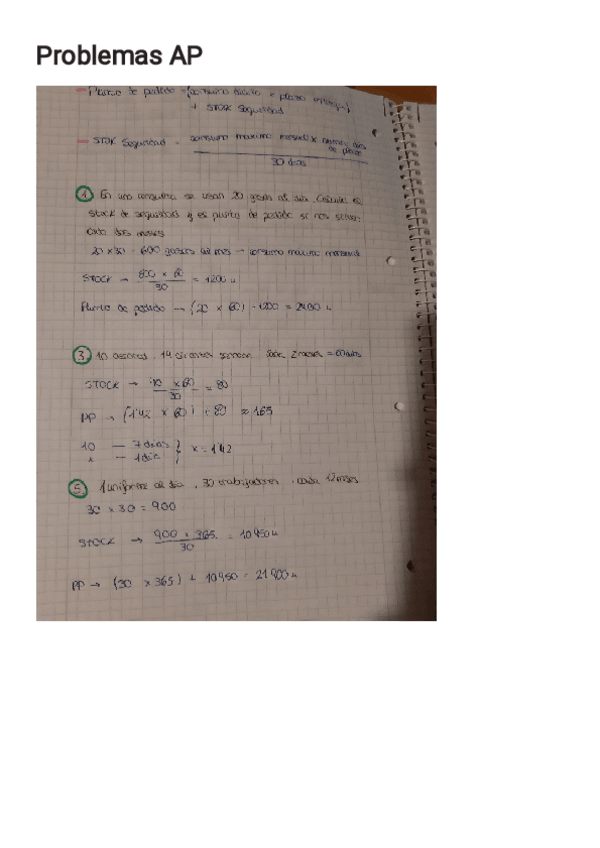 Problemas AP
Punto de pedido = (consumo diario × plazo entrega)
+ STOK Seguridad
STOK Seguridad =
consumo maximo mensual ×
de
30 dias
1. En una se usan 20 gasas al dia. Calcula el
stock de seguridad y el punto de pedido si nos sirven
cada dos meses
20 × 30 = 600 gasas al mes → consumo maximo mensual
STOCK → 600 × 60
30
= 1200 u
Punto de pedido → (20 × 60) + 1200 = 2400 u
3. 10 , 2 meses = 60 dias
STOCK → 40 × 60
30
= 80
PP → (1'42 × 60) + 80 ≈ 165
10 — 7 dias
x — 1 dia
x = 1'42
5. 1 uniforme al dia, 30 trabajadores, cada 12 meses
30 × 30 = 900
STOCK → 900 × 365
30
= 10950 u
PP → (30 × 365) + 10950 = 21900 u